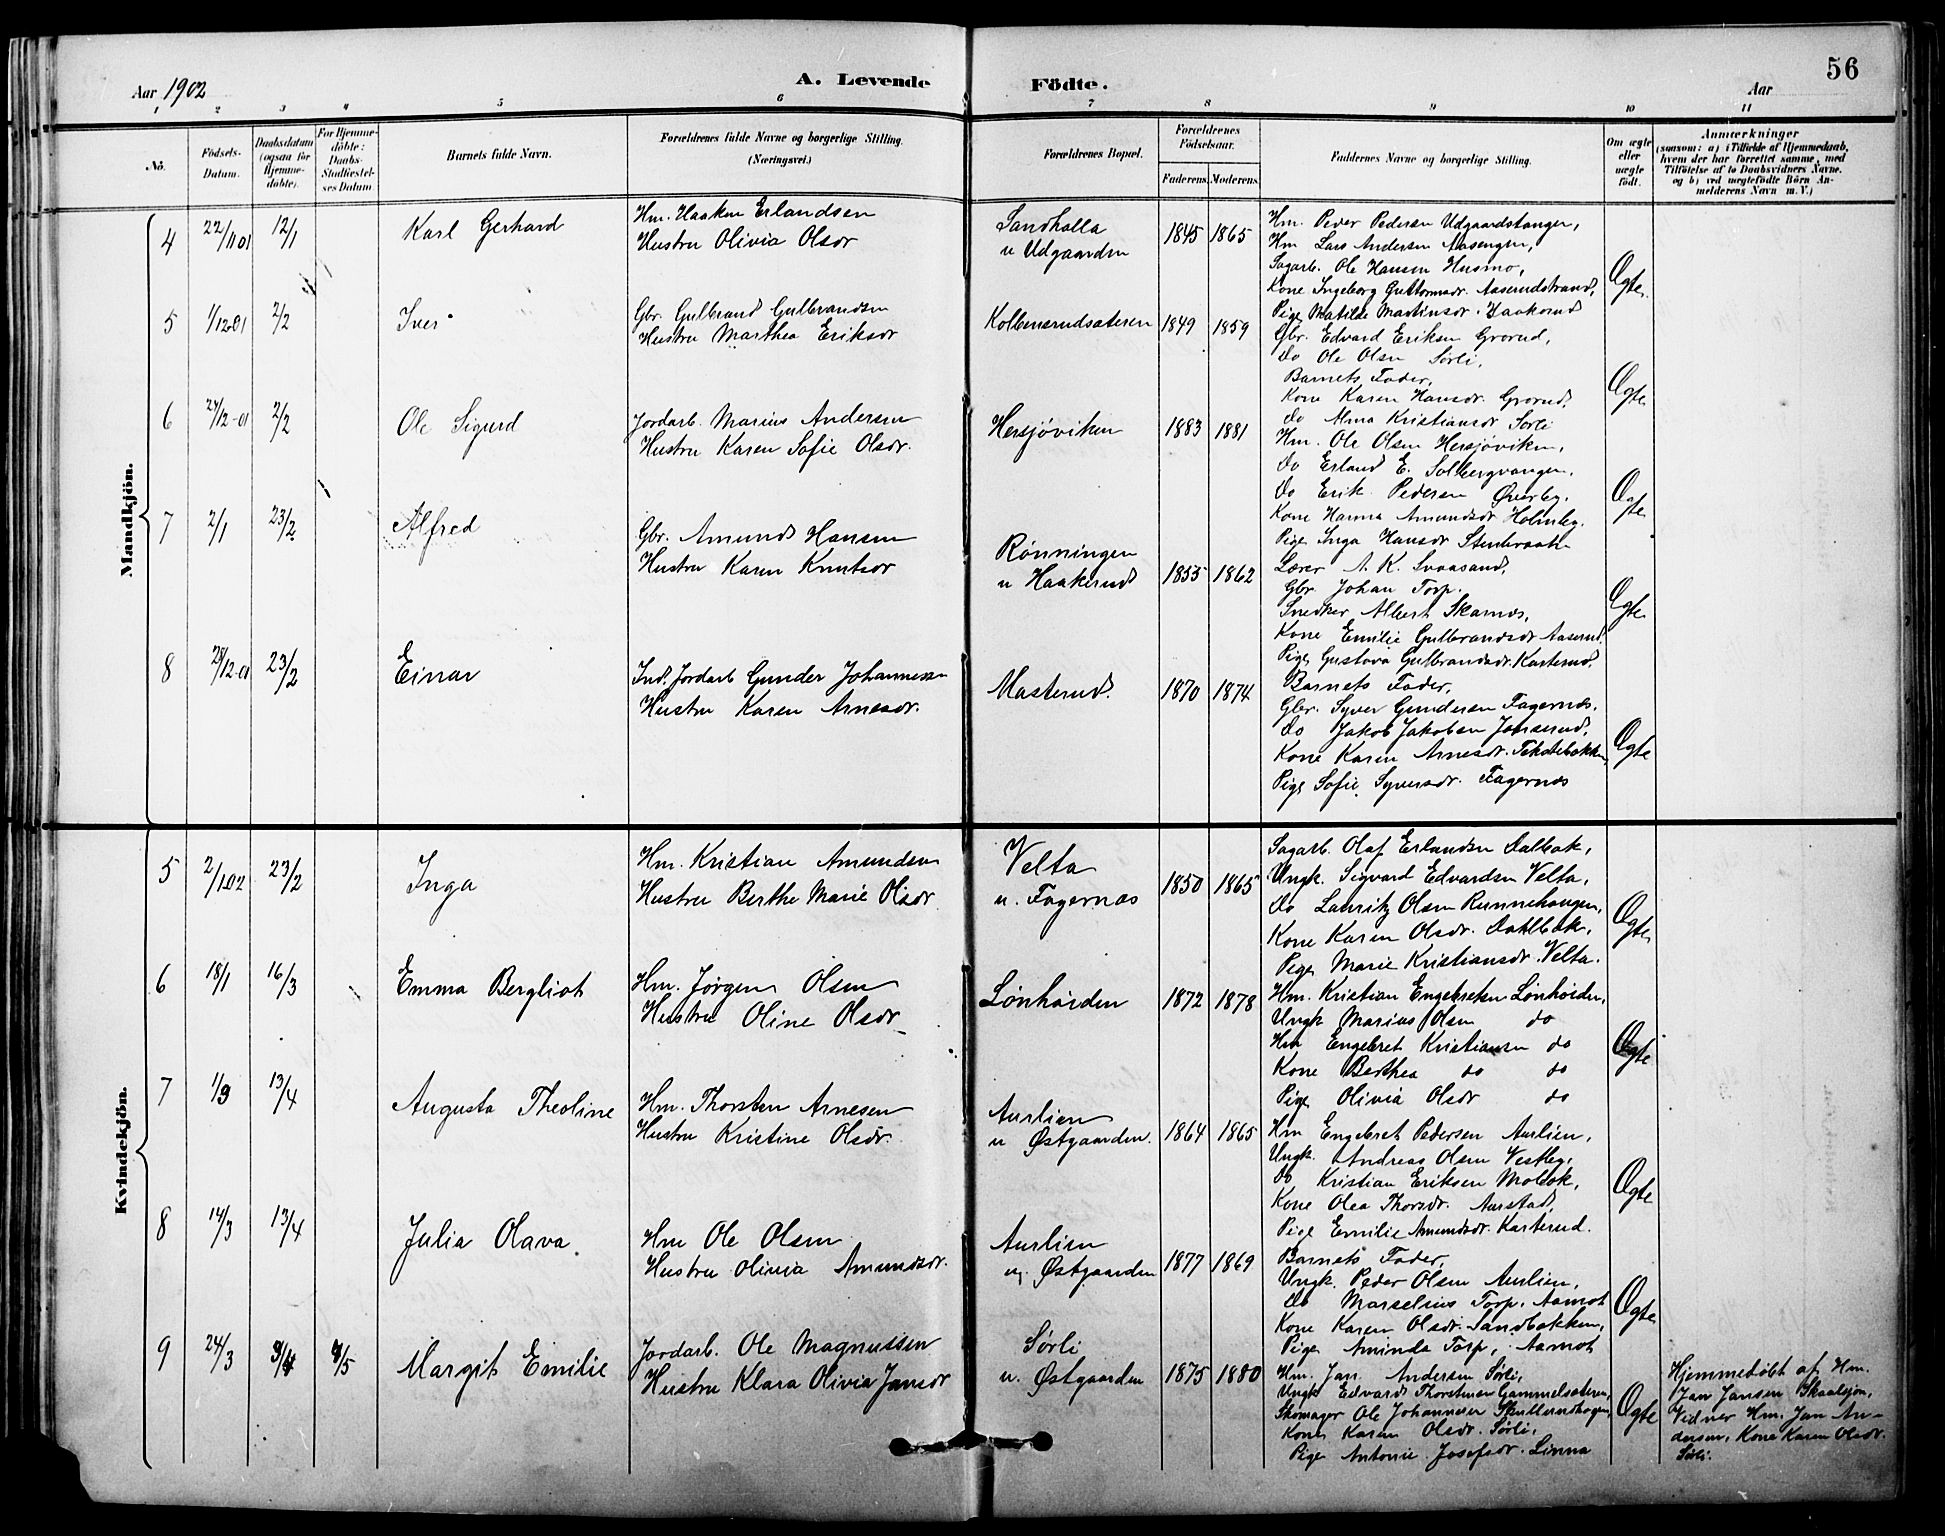 56
Aar 1902
A. Levende
Födte.
Aar
1 2 3 4 5 6 7 8 9 10 11
No.
Födsels-Datum.
Daabsdatum (ogsaa for Hjemme-döbte).
For Hjemme-döbte: Daabs-Stadfæstel-ses Datum.
Barnets fulde Navn.
Forældrenes fulde Navne og borgerlige Stilling.
(Næringsvei.)
Forældrenes Bopæl.
Forældrenes Födselsaar.
Faderens. Moderens.
Faddernes Navne og borgerlige Stilling.
Om ægte eller uægte födt.
Anmærkninger
(saasom: a) i Tilfælde af Hjemmedaab,
hvem der har forrettet samme, med
Tilföielse af to Daabsvidners Navne.
og b) ved uægtefödte Börn An-
melderens Navn m. V.)
Mandkjön.
4 22/11 01 12/1 Karl Gerhard
Hm. Haaken Erlandsen
Hustru Olivia Olsdr
Sandhalla
u Udgaarden
1845 1865
Hm. Peder Pedersen Udgaardstangen,
Hm Lars Andersen Aasengen,
Sagarb. Ole Hansen Husmo,
Kone Ingeborg Guttormsdr. Aaserudstrand,
Pige Matilde Martinsdr. Haakerud
Ægte.
5 1/12 01 2/2 Iver
Gbr. Gulbrand Gulbrandsen
Hustru Marthea Eriksdr
Kolbensrudsæteren
1849 1859
Gbr. Edvard Eriksen Grorud,
do Ole Olsen Sørli,
Barnets Fader,
Kone Karen Hansdr. Grorud,
do Alma Kristiansdr Sørli
Ægte.
6 27/12-01 2/2 Ole Sigurd
Jordarb. Marius Andersen
Hustru Karen Sofie Olsdr.
Hersjøviken
1883 1881
Hm. Ole Olsen Hersjøviken,
do Erland E. Solbergvangen,
do Erik Pedersen Øverby.
Kone Hanna Amundsdr Holmby.
Pige Inga Hansdr Stenbraaten
Ægte
7 2/1 23/2 Alfred
Gbr. Amund Hansen
Hustru Karen Knutsdr
Rønningen
u Haakerud
1855 1862
Lærer A. K. Svaasand,
Gbr. Johan Torp.
Snedker Albert Skarnæs,
Kone Emilie Gulbrandsdr Aaserud
Pige Gustava Gulbrandsdr. Karterud.
Ægte
8 28/12-01 23/2 Einar
Ind. Jordarb Gunder Johannessen
Hustru Karen Arnesdr.
Masterud.
1870 1874
Barnets Fader,
Gbr. Syver Gundersen Fagernæs,
do Jakob Jakobsen Jonserud,
Kone Karen Arnesdr.
Pige Sofie Syversdr. Fagernæs
Ægte
Kvindekjön.
5 2/1 02 23/2 Inga
Hm. Kristian Amundsen
Hustru Berthe Marie Olsdr
Velta
u. Fagernæs
1850 1865
Sagarb. Olaf Erlandsen Dalbæk,
Ungk. Sigvard Edvardsen Velta,
do Lauritz Olsen Runnehaugen,
Kone Karen Olsdr. Dahlbæk,
Pige Marie Kristiansdr. Velta.
Ægte
6 18/1 16/3 Emma Bergliot
Hm. Jørgen Olsen
Hustru Oline Olsdr
Lønhøiden
1872 1878
Hm. Kristian Engebretsen Lønhøiden,
Ungk Marius Olsen do
Hm Engebret Kristiansen do
Kone Berthea do do
Pige Olivia Olsdr do
Ægte
7 1/3 13/4 Augusta Theoline
Hm. Thorsten Arnesen
Hustru Kristine Olsdr.
Aurlien
u Østgaarden.
1864 1865
Hm Engebret Pedersen Aurlien,
Ungk. Andreas Olsen Vestby,
do Kristian Eriksen Molbæk,
Kone Olea Thorsdr. Aurstad,
Pige Emilie Amundsdr. Karterud.
Ægte
8 14/3 13/4 Julia Olava
Hm Ole Olsen
Hustru Olivia Amundsdr.
Aurlien
u. Østgaarden
1877 1869
Barnets Fader,
Ungk. Peder Olsen Aurlien,
do Marselius Torp, Aamot
Kone Karen Olsdr. Sandbakken,
Pige Aminda Torp, Aamot
Ægte
9 24/3 3/4 4/5 Margit Emilie
Jordarb. Ole Magnussen
Hustru Klara Olivia Jansdr
Sørli
u. Østgaarden
1875 1880
Hm. Jan Andersen Sørli,
Ungk Edvard Thorstensen Gammelsæteren,
Skomager Ole Johannesen Skullerudhagen,
Kone Karen Olsdr. Sørli,
Pige Antonie Josefsdr. Linna
Ægte
Hjemmedøbt af Hm.
Jan Jansen Skaalsjøn,
Vidner Hm. Jan An-
dersen, Kone Karen Olsdr.
Sørli.